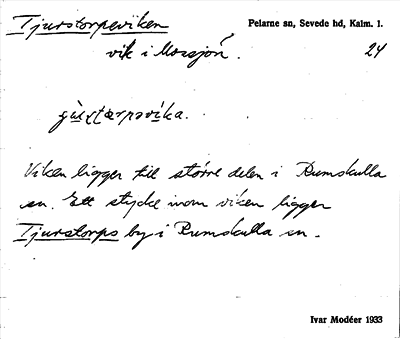 Tjurstorpeviken
Pelarne sn, Sevede hd, Kalm. l.
vik i Mossjön.
24
Viken ligger till större delen i Rumskulla
sn. Ett stycke inom viken ligger
Tjurstorps by i Rumskulla sn.
Ivar Modéer 1933